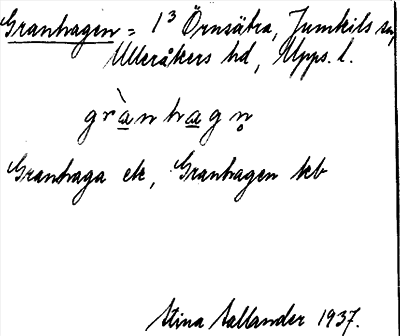 Granhagen = 1³ Örnsätra, Jumkils sn,
Ulleråkers hd, Upps. l.
gràn hagn̥
Granhaga ek, Granhagen kb
Stina Sallander 1937.